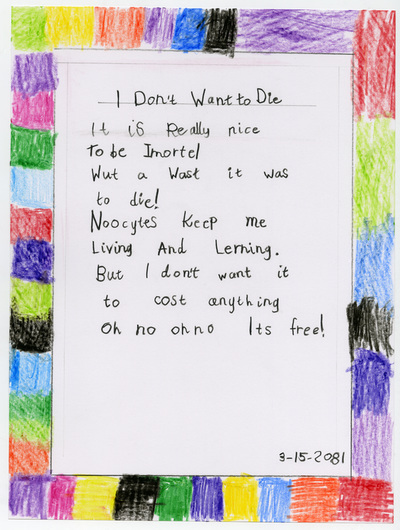 I Don't Want to Die
It is Really nice
To be Imortel
Wut a Wast it was
to die!
Noocytes Keep me
Living And Lerning.
But I don't want it
to cost anything
Oh no oh no Its free!
3-15-2081